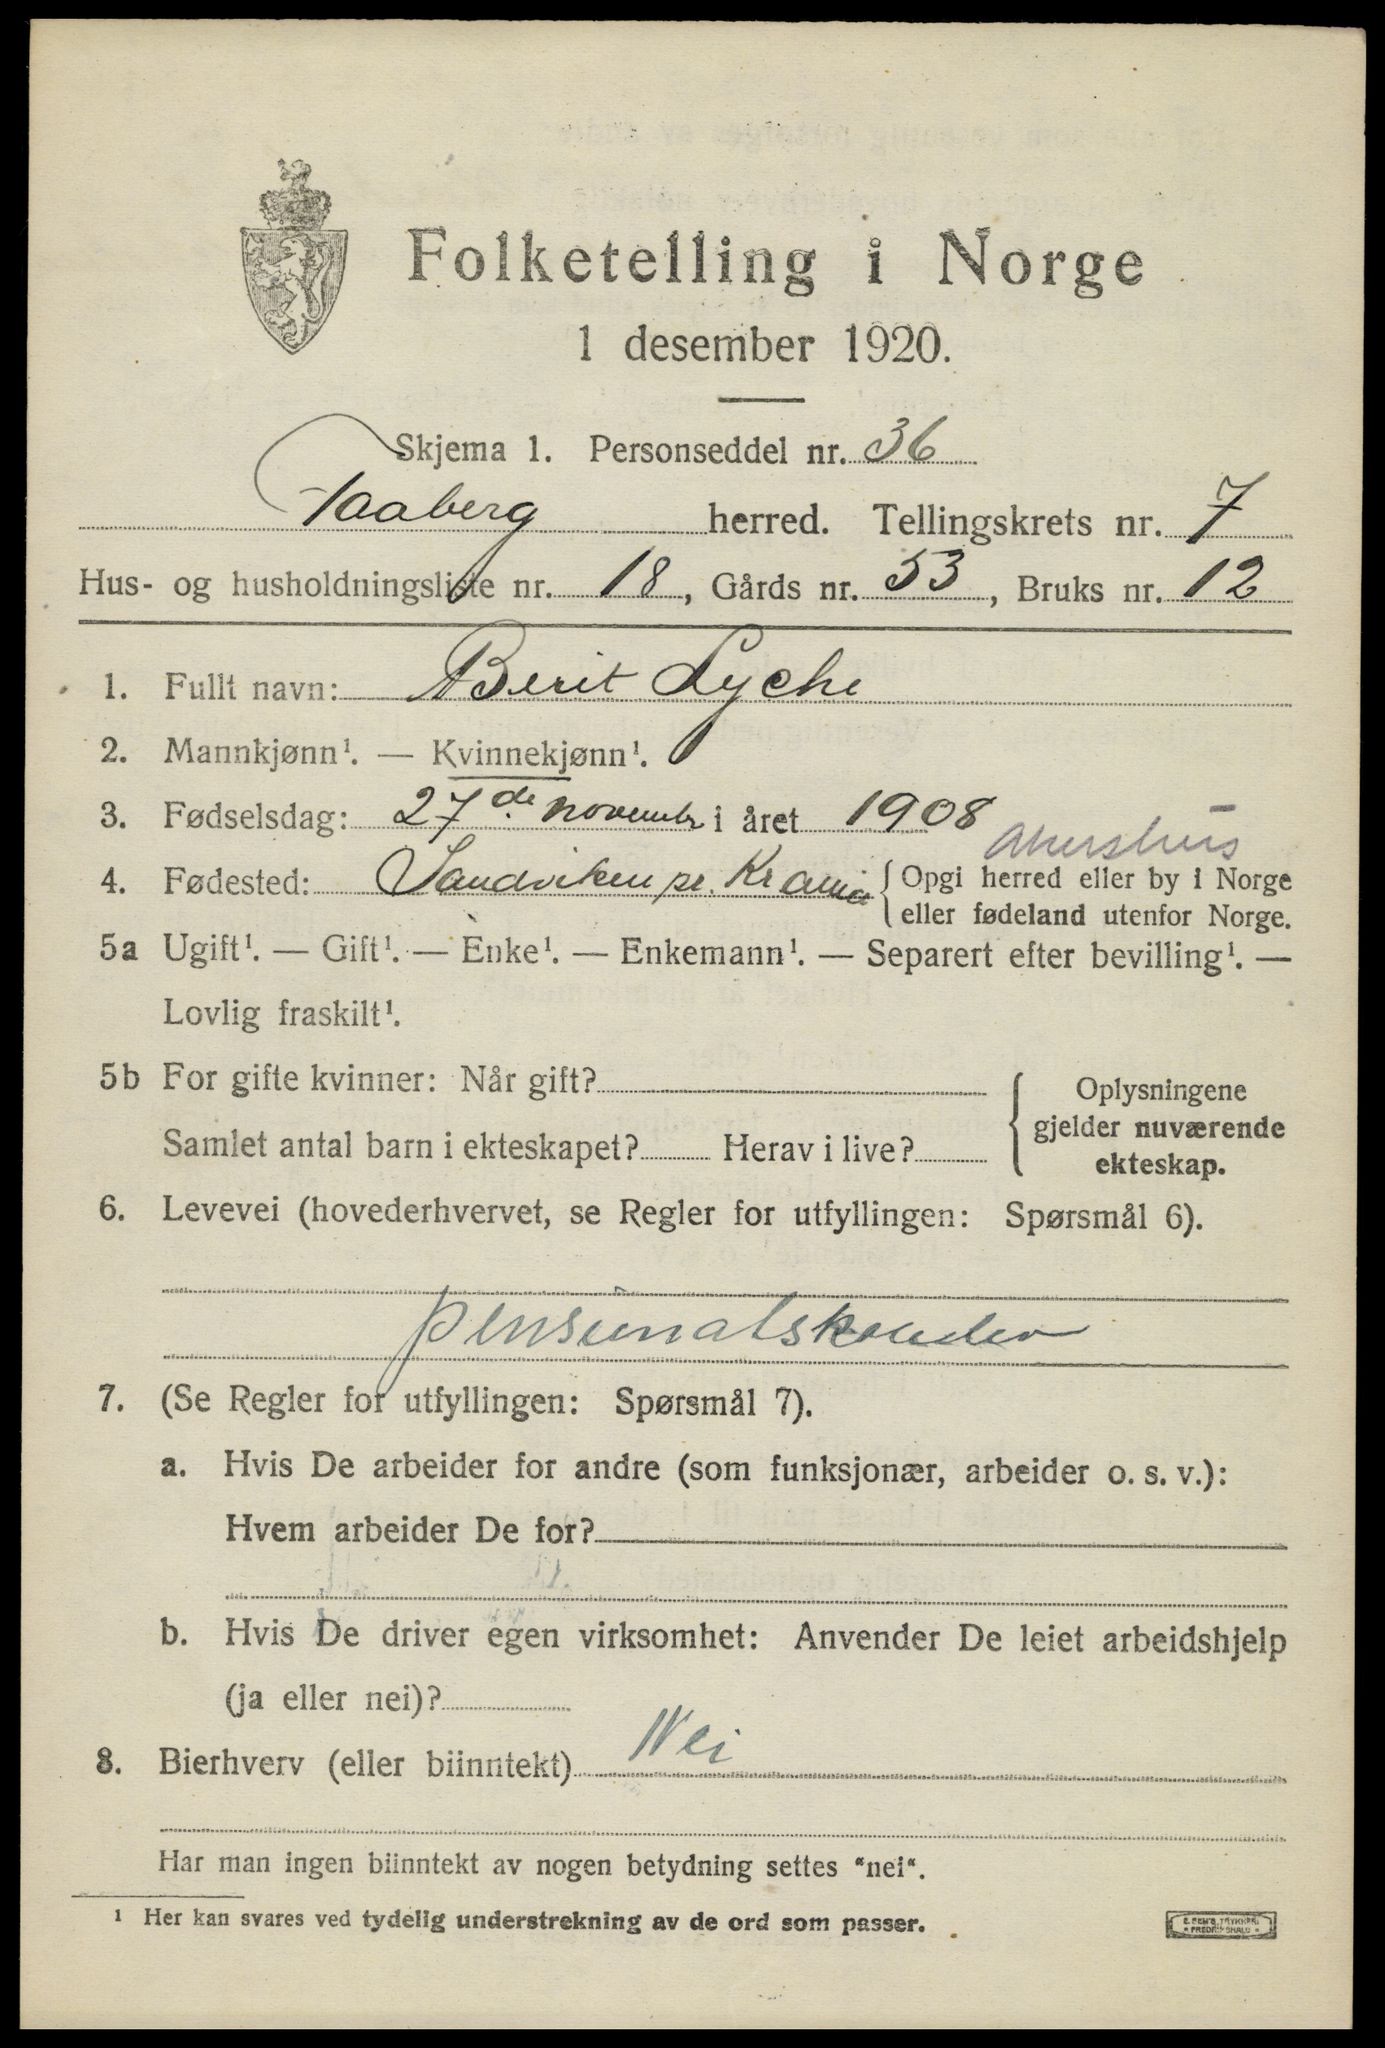 Folketelling i Norge
1 desember 1920.
Skjema 1. Personseddel nr. 36
Faaberg herred. Tellingskrets nr. 7
Hus- og husholdningsliste nr. 18, Gårds nr. 53, Bruks nr. 12
1. Fullt navn: Berit Lyche
2. Mannkjønn¹. — Kvinnekjønn¹.
3. Fødselsdag: 27de november i året 1908
Akershus
4. Fødested: Sandviken pr. Krania { Opgi herred eller by i Norge
eller fødeland utenfor Norge.
5a Ugift¹. — Gift¹. — Enke¹. — Enkemann¹. — Separert efter bevilling¹. —
Lovlig fraskilt¹.
5b For gifte kvinner: Når gift?
Samlet antal barn i ekteskapet? Herav i live?
Oplysningene
gjelder nuværende
ekteskap.
6. Levevei (hovederhvervet, se Regler for utfyllingen: Spørsmål 6).
7. (Se Regler for utfyllingen: Spørsmål 7).
a. Hvis De arbeider for andre (som funksjonær, arbeider o. s. v.):
Hvem arbeider De for?
b. Hvis De driver egen virksomhet: Anvender De leiet arbeidshjelp
(ja eller nei)?
8. Bierhverv (eller biinntekt) Nei
Har man ingen biinntekt av nogen betydning settes "nei".
¹ Her kan svares ved tydelig understrekning av de ord som passer.